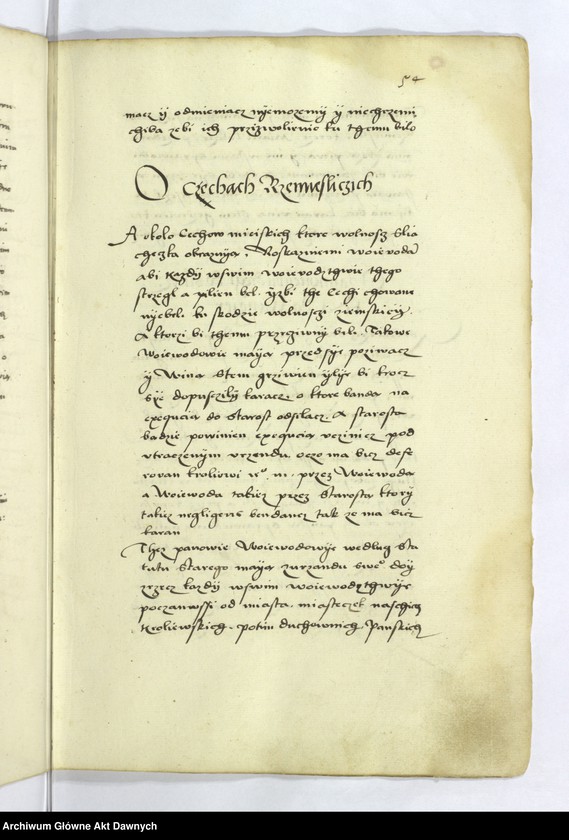 54
macz y odmieniacz nyemozemy y niechczemi
chiba zebi ich przizwolienie ku themu bilo
O Czechach Rzemiesliczich
A około Cechow miejskich ktore wolnosz Slia
checzka obrazaya, Roskazuiemi woiewoda
abi kazdy wswim woiewodzthwie thego
strzegl a pilien bel. yzbi the Cechi chowane
nyebeli. ku skodzie wolnoszi ziemskiey.
A ktorzi bi themu przeciwny bili. Takowe
Woiewodowie maya przedsye poziwacz
y Wina Stem grziwien ylye bi krocz
sye dopusczily karacz. o ktore banda na
exequcia do Starost odsilacz. A starosta
badzie powinien exequcia vczinicz pod
vtraczenym vrzendu. oczo ma bicz defe
rowan kroliowi ie° m. przez Woiewoda
a Woiewoda takiez przez Starosta ktory
takiez negligens bendancz tak ze ma bicz
karan
Thez panowie Woiewodowye wedlug Sta
tutu Starego maya zurzandu swe° doy
zrzecz kazdy wswim woiewodzthwye
poczawssi od miasta. miasteczek naschich
Kroliewskich. potim duchownich, Panskich
Archiwum Główne Akt Dawnych